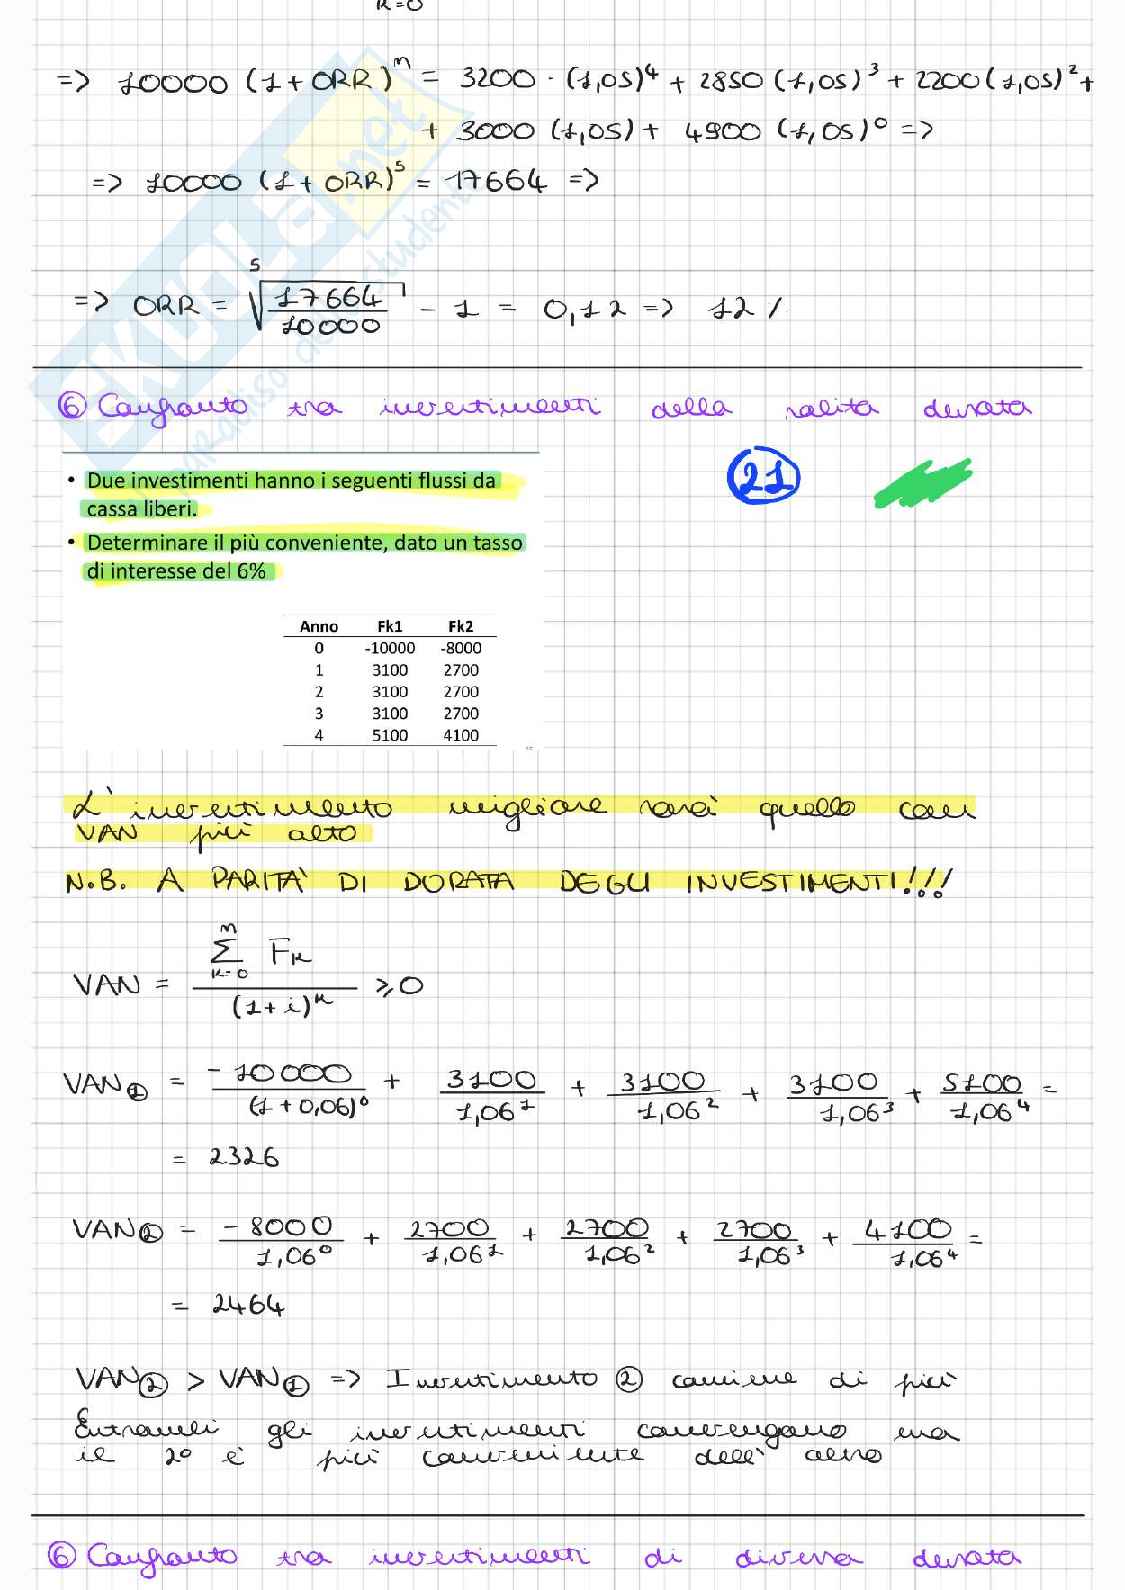 K=0
=> 10000 (1 + ORR)^n = 3200 · (1,05)^4 + 2850 (1,05)^3 + 2200 (1,05)^2 +
+ 3000 (1,05) + 4900 (1,05)^0 =>
=> 10000 (1 + ORR)^5 = 17664 =>
=> ORR = ⁵√(17664/10000) - 1 = 0,12 => 12 /
⑥ Confronto tra investimenti della salita durata
• Due investimenti hanno i seguenti flussi da
cassa liberi.
21
• Determinare il più conveniente, dato un tasso
di interesse del 6%
Anno Fk1 Fk2
0 -10000 -8000
1 3100 2700
2 3100 2700
3 3100 2700
4 5100 4100
L'investimento migliore sarà quello con
VAN più alto
N.B. A PARITA' DI DORATA DEGLI INVESTIMENTI!!!
VAN = Σ(k=0, n) Fk / (1+i)^k ⩾ 0
VAN① = -10000/(1+0,06)^0 + 3100/1,06^1 + 3100/1,06^2 + 3100/1,06^3 + 5100/1,06^4 =
= 2326
VAN② = -8000/1,06^0 + 2700/1,06^1 + 2700/1,06^2 + 2700/1,06^3 + 4100/1,06^4 =
= 2464
VAN② > VAN① => Investimento ② conviene di più
Entrambi gli investimenti convengono ma
il 2° è più conveniente dell'altro
⑥ Confronto tra investimenti di diversa durata
SKUOLA.net